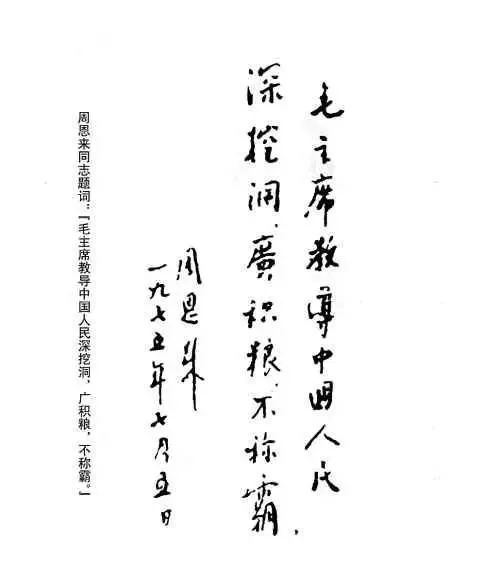 毛主席教导中国人民
深挖洞、廣积粮、不称霸。
周恩来
一九七五年七月五日
周恩来同志题词：“毛主席教导中国人民深挖洞，广积粮，不称霸。”